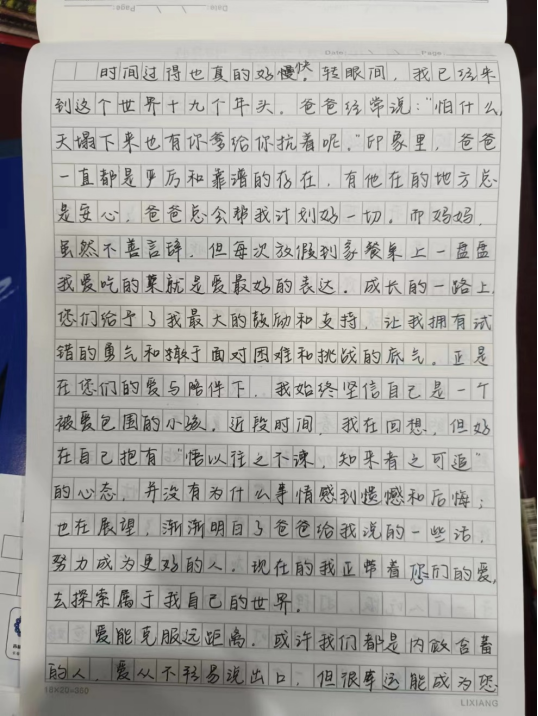 Date: Page:
时间过得也真的好慢快。轻眼间，我已经来
到这个世界十九个年头。爸爸经常说："怕什么，
天塌下来也有你爹给你抗着呢。"印象里，爸爸
一直都是严厉和靠谱的存在，有他在的地方总
是安心，爸爸总会帮我计划好一切。而妈妈，
虽然不善言辞，但每次放假到家餐桌上一盘盘
我爱吃的菜就是爱最好的表达。成长的一路上，
您们给予了我最大的鼓励和支持，让我拥有试
错的勇气和敢于面对困难和挑战的底气。正是
在您们的爱与陪伴下，我始终坚信自己是一个
被爱包围的小孩。近段时间，我在回想，但好
在自己抱有"悟以往之不谏，知来者之可追"
的心态，并没有为什么事情感到遗憾和后悔；
也在展望，渐渐明白了爸爸给我说的一些话，
努力成为更好的人。现在的我正带着您们的爱，
去探索属于我自己的世界。
爱能克服远距离。或许我们都是内敛含蓄
的人，爱从不轻易说出口，但很幸运能成为您
15×20=300 LIXIANG